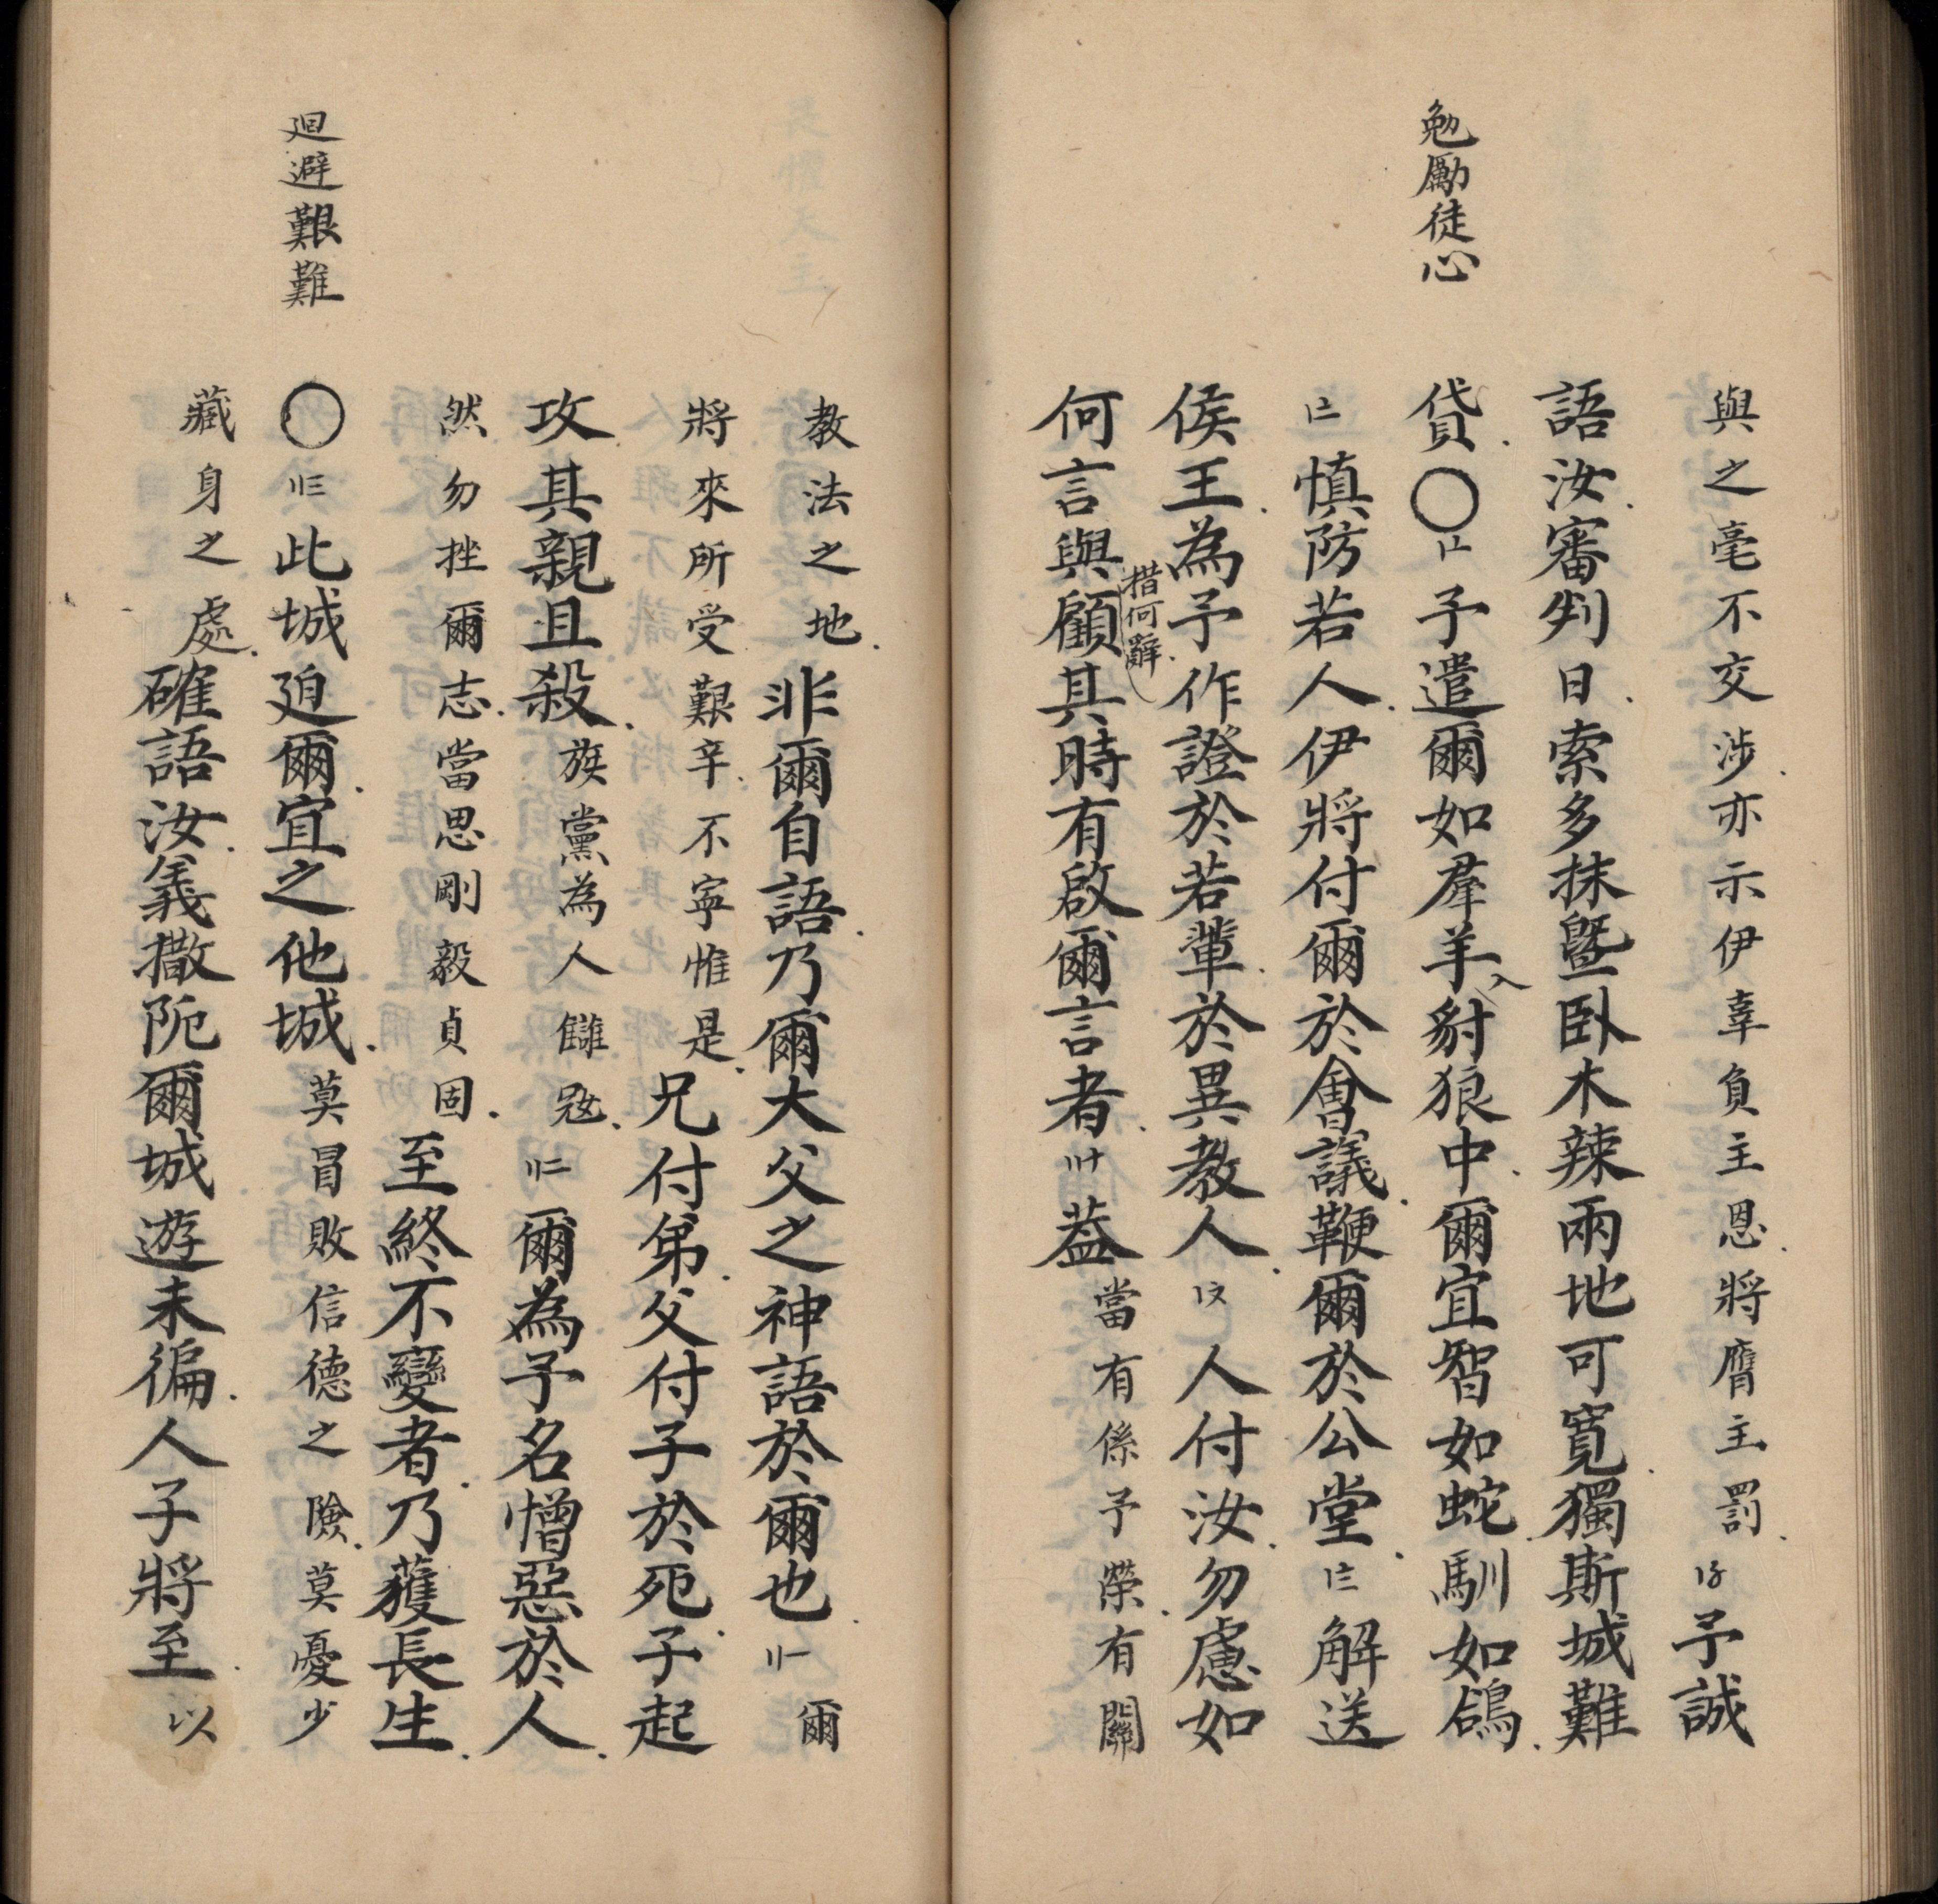 勉勵徒心
與之毫不交涉亦示伊辜負主恩將膺主罰〡〥予誠
語汝審判日索多抹暨卧木辣兩地可寬獨斯城難
貸〇〡〦予遣爾如羣羊入豺狼中爾宜智如蛇馴如鴿
〡〧慎防若人伊將付爾於會議鞭爾於公堂〡〨解送
侯王為予作證於若輩於異教人〡〩人付汝勿慮如
何言與顧其時有啟爾言者〢〸葢當有係予榮有關
措何辭
教法之地非爾自語乃爾大父之神語於爾也〢一爾
將來所受艱辛不寜惟是兄付弟父付子於死子起
攻其親且殺族黨為人讎敚〢二爾為予名憎惡於人
然勿挫爾志當思剛毅貞固至終不變者乃獲長生
廻避艱難
〇〢三此城廹爾宜之他城莫冒敗信德之險莫憂少
藏身之處確語汝義撒阨爾城遊未徧人子將至以